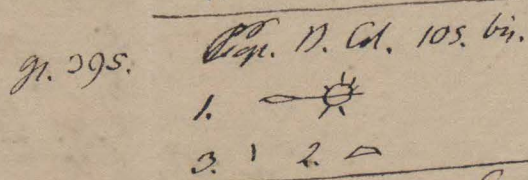 gr. 395.
Pap. D. Col. 105. bis.
1.
3. 2.